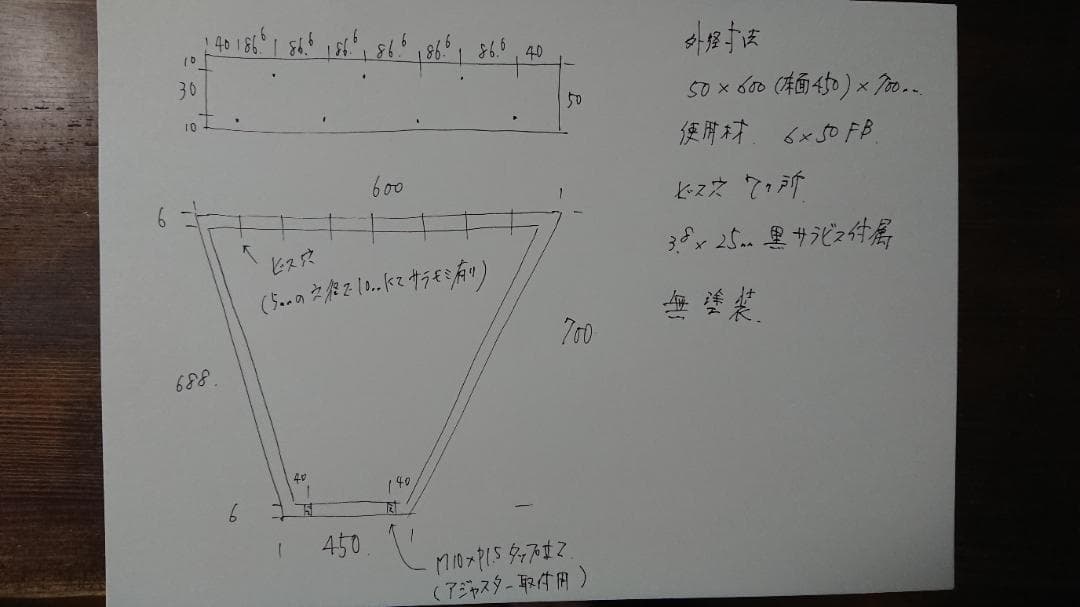 40 86.6 86.6 86.6 86.6 86.6 86.6 40
10
30
10
50
600
6
ビス穴
(5mmの穴径で10mmにてサラモミ有り)
700
688.
40
40
6
450.
M10×P1.5タップ加工
(アジャスター取付用)
外径寸法
50×600(床面450)×700mm
使用材. 6×50FB.
ビス穴 7ヶ所.
3.8×25mm黒サラビス付属
無塗装.